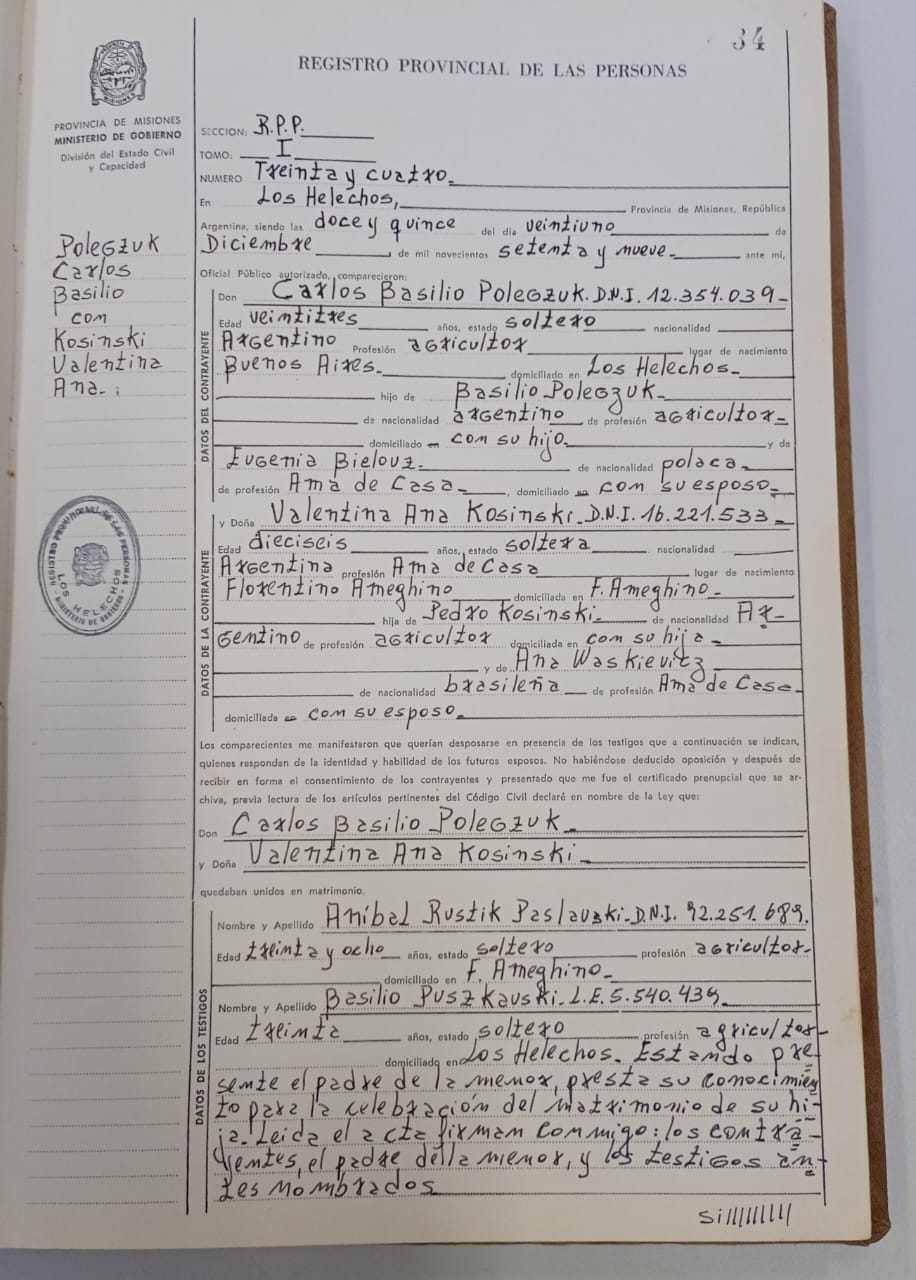 34
REGISTRO PROVINCIAL DE LAS PERSONAS
PROVINCIA DE MISIONES
MINISTERIO DE GOBIERNO
División del Estado Civil
y Capacidad
SECCION: R.P.P.
TOMO: I
NUMERO Treinta y cuatro.
En Los Helechos, Provincia de Misiones, República
Argentina, siendo las doce y quince del día veintiuno de
Diciembre de mil novecientos setenta y nueve. ante mi,
Oficial Público autorizado, comparecieron:
Polegzuk
Carlos
Basilio
com
Kosinski
Valentina
Ana.
DATOS DEL CONTRAYENTE
Don Carlos Basilio Polegzuk. D.N.I. 12.354.039
Edad veintitres años, estado soltero nacionalidad
Argentino Profesión agricultor lugar de nacimiento
Buenos Aires. domiciliado en Los Helechos.
hijo de Basilio Polegzuk
de nacionalidad argentino de profesión agricultor
domiciliado en com su hijo y de
Eugenia Bielouz de nacionalidad polaca
de profesión Ama de Casa , domiciliado en com su esposo
REGISTRO PROVINCIAL DE LAS PERSONAS
LOS HELECHOS
MINISTERIO DE GOBIERNO
DATOS DE LA CONTRAYENTE
y Doña Valentina Ana Kosinski. D.N.I. 16.221.533
Edad dieciseis años, estado soltera nacionalidad
Argentina profesión Ama de Casa lugar de nacimiento
Florentino Ameghino domiciliada en F. Ameghino
hija de Pedro Kosinski de nacionalidad Ar-
gentino de profesión agricultor domiciliada en com su hija
y de Ana Waskievitz
de nacionalidad brasileña de profesión Ama de Casa
domiciliada en com su esposo
Los comparecientes me manifestaron que querían desposarse en presencia de los testigos que a continuación se indican,
quienes responden de la identidad y habilidad de los futuros esposos. No habiéndose deducido oposición y después de
recibir en forma el consentimiento de los contrayentes y presentado que me fue el certificado prenupcial que se ar-
chiva, previa lectura de los artículos pertinentes del Código Civil declaré en nombre de la Ley que:
Don Carlos Basilio Polegzuk
y Doña Valentina Ana Kosinski
quedaban unidos en matrimonio.
DATOS DE LOS TESTIGOS
Nombre y Apellido Aníbal Rustik Paslauski. D.N.I. 92.251.689.
Edad treinta y ocho años, estado soltero profesión agricultor
domiciliado en F. Ameghino
Nombre y Apellido Basilio Puszkauski. L.E. 5.540.439
Edad treinta años, estado soltero profesión agricultor
domiciliado en Los Helechos. Estando pre-
sente el padre de la menor, presta su conocimien
to para la celebración del matrimonio de su hi-
ja. Leida el acta firman commigo: los contra-
yentes, el padre de la menor, y los testigos an-
tes nombrados